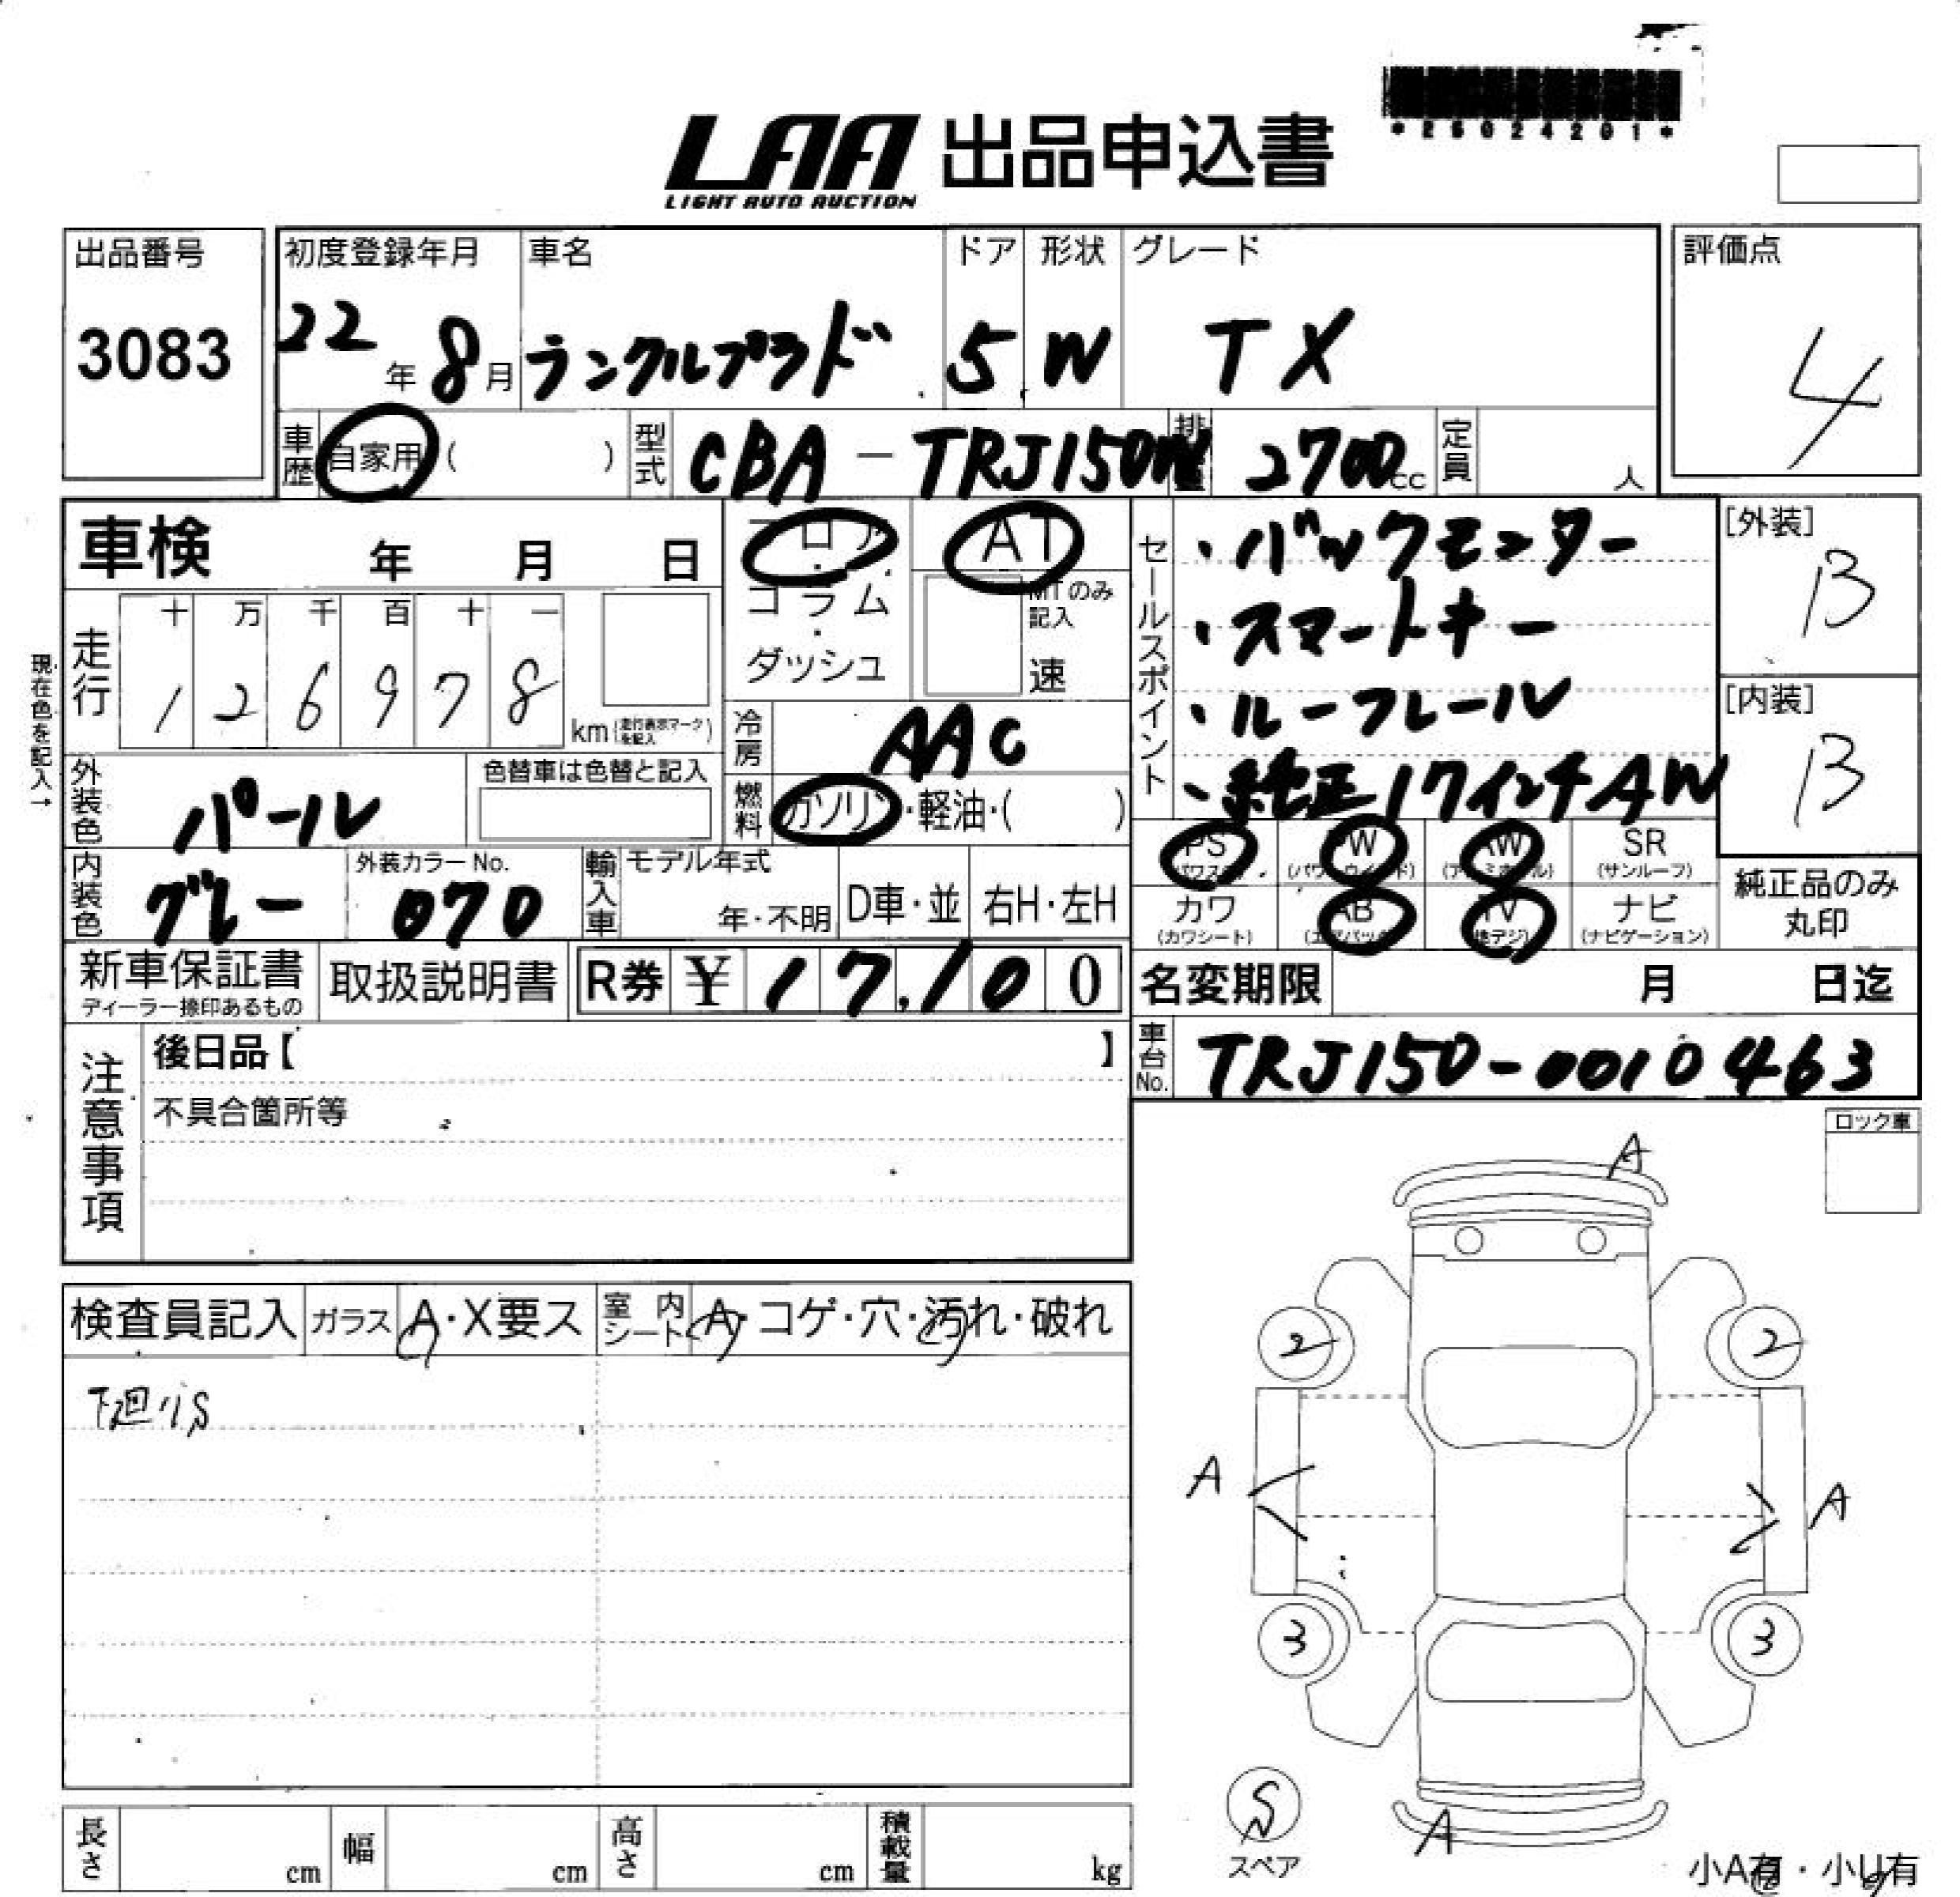 *25024201*
LAA 出品申込書
LIGHT AUTO AUCTION
出品番号
3083
初度登録年月
22年8月
車名
ランクルプラド
ドア
5
形状
W
グレード
TX
評価点
4
車歴
自家用( )
型式
CBA-TRJ150W
2700cc
定員
人
車検 年 月 日
フロア
・
コラム
・
ダッシュ
AT
MTのみ
記入
速
セールスポイント
・バックモニター
・スマートキー
・ルーフレール
・純正17インチAW
[外装]
B
[内装]
B
現在色を記入→
走行
十 万 千 百 十 一
1 2 6 9 7 8
km(走行表示マークを記入)
冷房
AAC
燃料
ガソリン・軽油・( )
外装色
パール
色替車は色替と記入
内装色
グレー
外装カラーNo.
070
輸入車
モデル年式
年・不明
D車・並
右H・左H
PS PW AW SR
(サンルーフ)
カワ AB TV ナビ
(カワシート) (ナビゲーション)
純正品のみ
丸印
新車保証書
ディーラー捺印あるもの
取扱説明書
R券 ¥ 17,100
名変期限 月 日迄
車台No.
TRJ150-0010463
注意事項
後日品【 】
不具合箇所等
ロック車
検査員記入
ガラス
A・X要ス
室内シート
A・コゲ・穴・汚れ・破れ
下廻小S
A
2 2
A A
3 3
S
スペア
A
小A有・小U有
長さ cm
幅 cm
高さ cm
積載量 kg